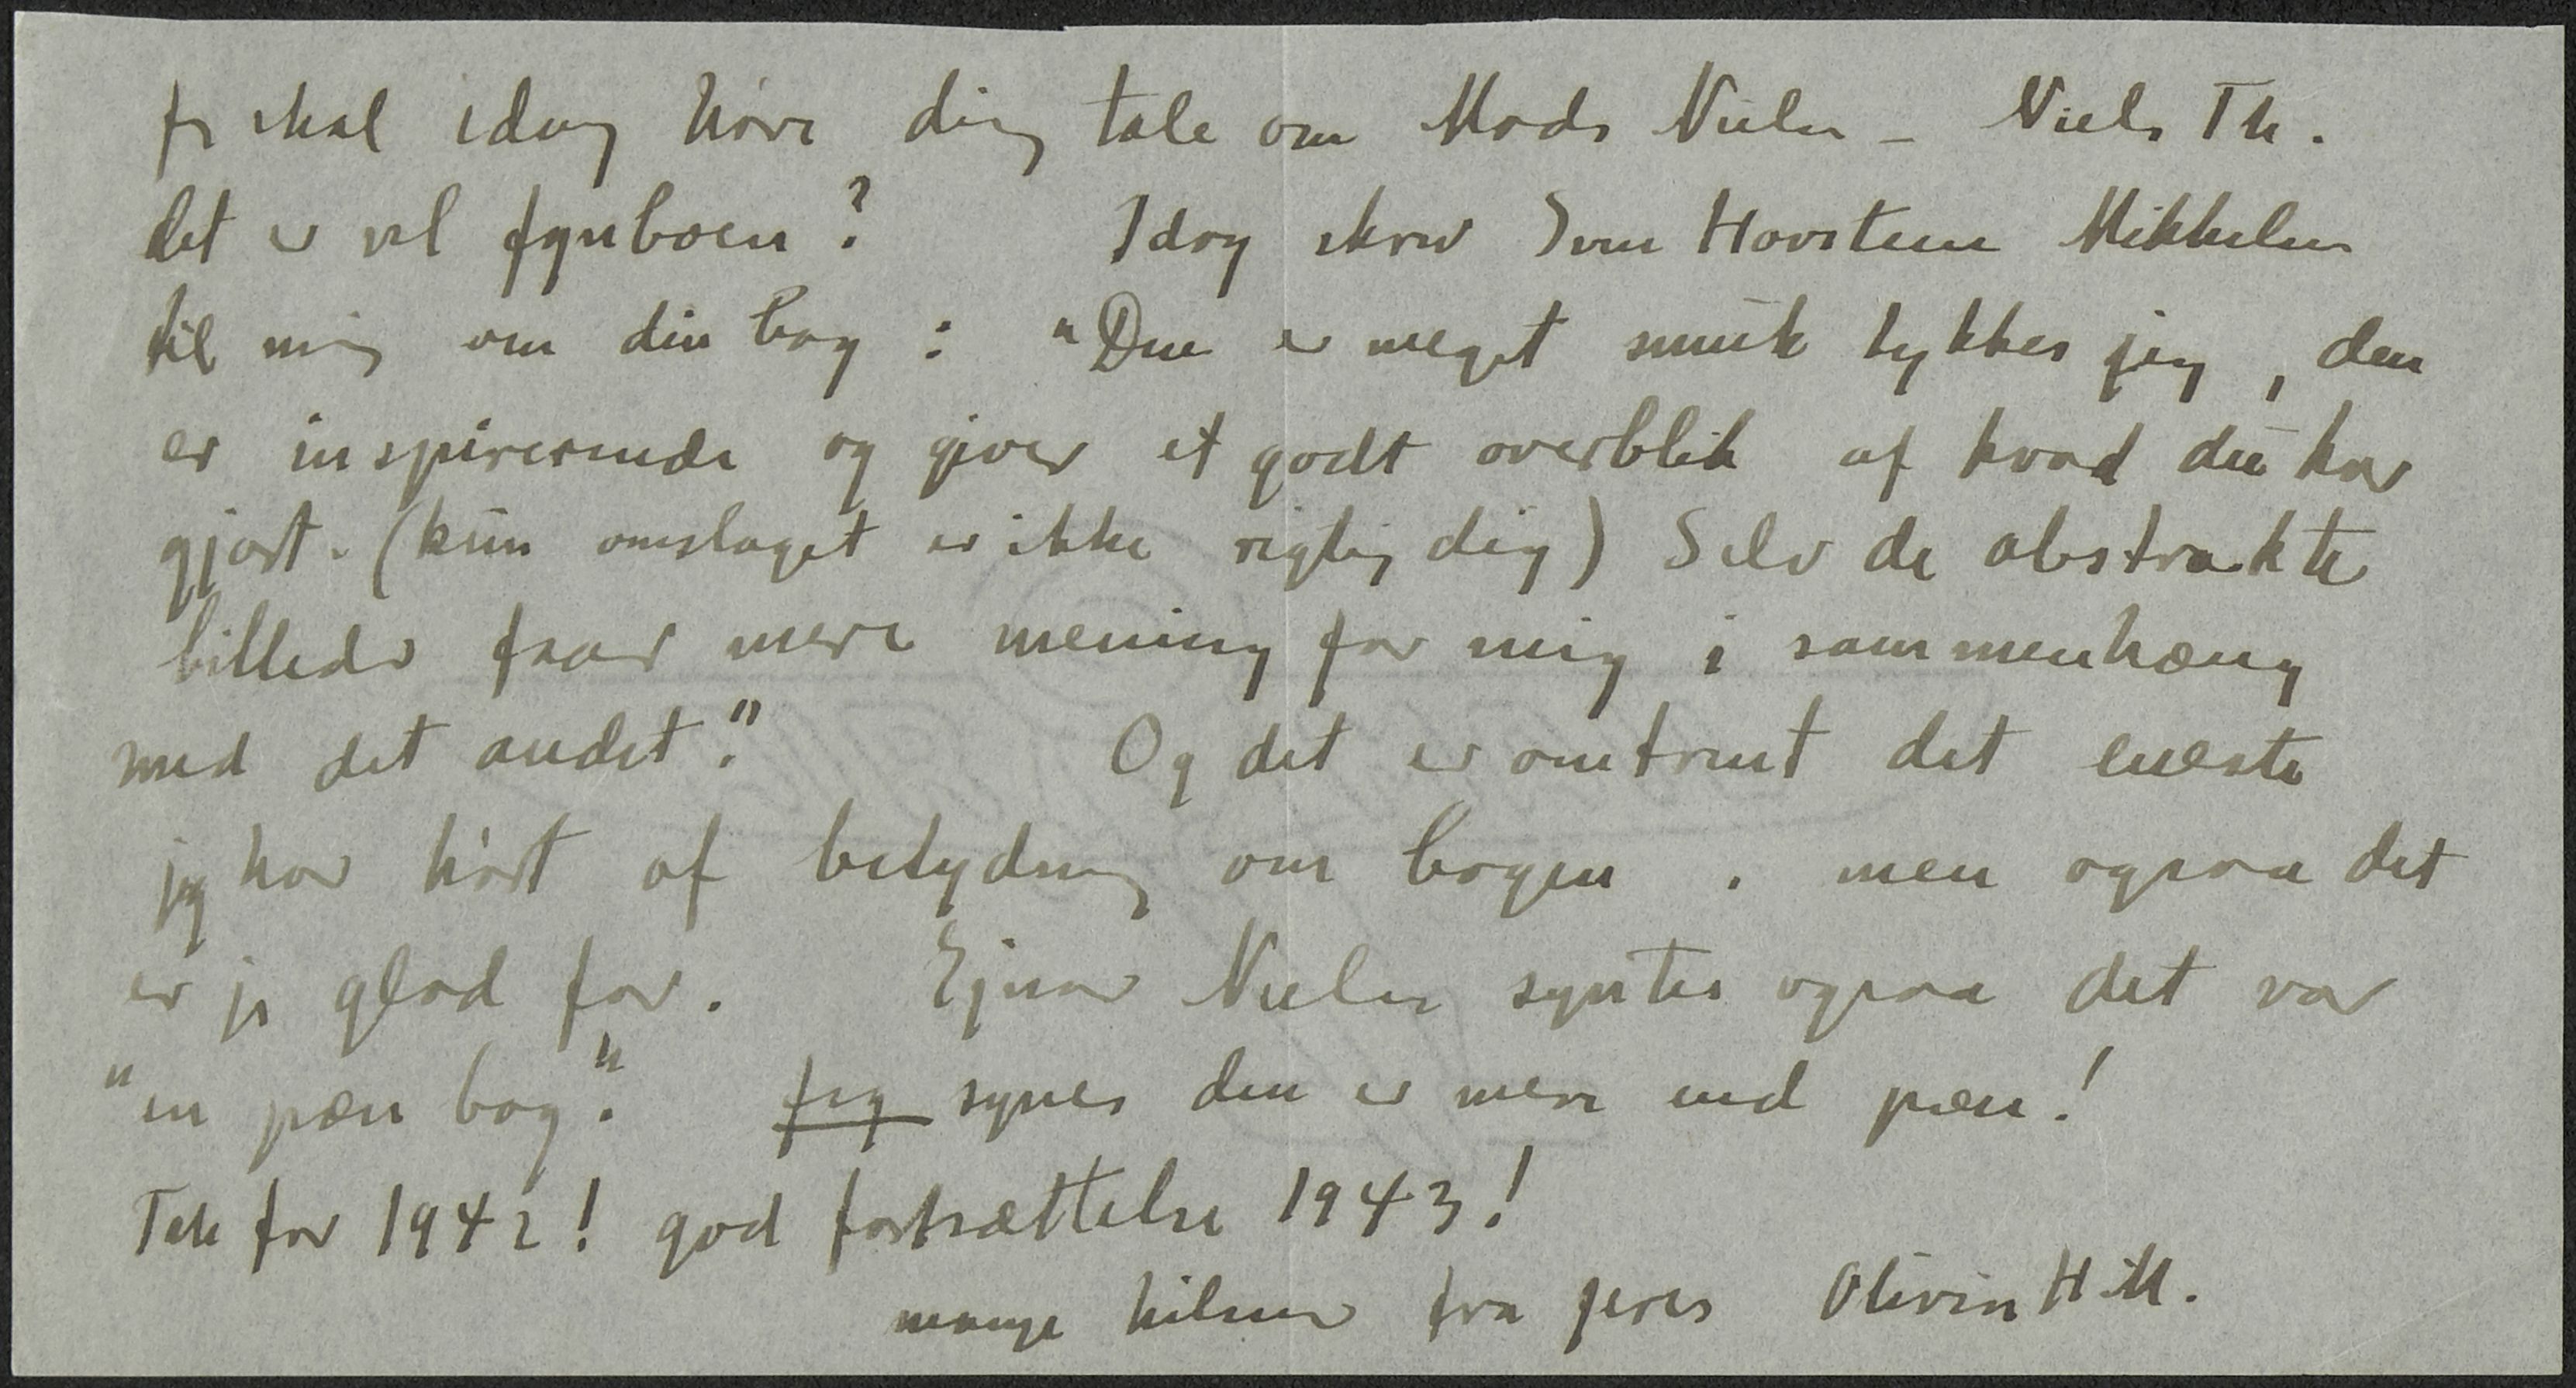 jeg skal idag høre dig tale om Mads Nielsen - Niels Th.
det er vel fynboen? Idag skrev Sven Havsteen Mikkelsen
til mig om din bog : "Den er meget smuk tykkes jeg, den
er inspirerende og giver et godt overblik af hvad du har
gjort. (kun omslaget er ikke rigtig dig) Selv de abstrakte
billeder faar mere mening for mig i sammenhæng
med det andet." Og det er omtrent det eneste
jeg har hørt af betydning om bogen . men ogsaa det
er jeg glad for. Ejnar Nielsen syntes ogsaa det var
"en pæn bog". Jeg synes den er mere end pæn!
Tak for 1942! god fortsættelse 1943!
mange hilsner fra jeres Olivia H.M.